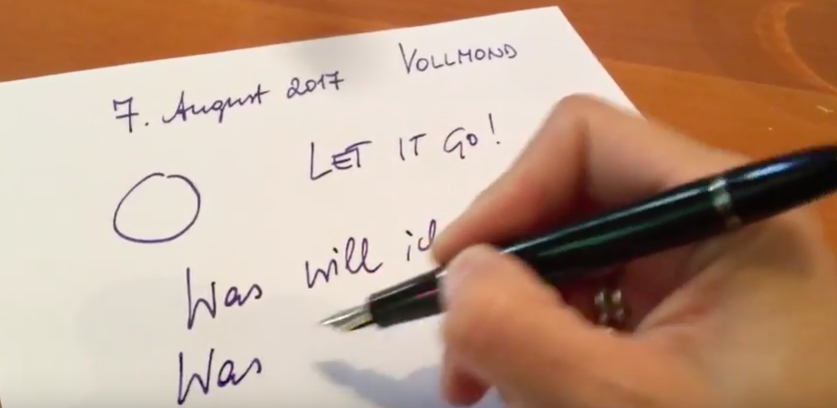 7. August 2017 VOLLMOND
LET IT GO!
Was will
Was